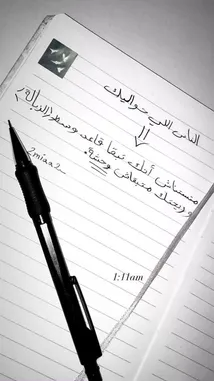 الناس اللي حواليك
متستناش أنك تبقا قاعد وسط الزباله
وريحتك متبقاش وحشة
2miaa2_
1:11am